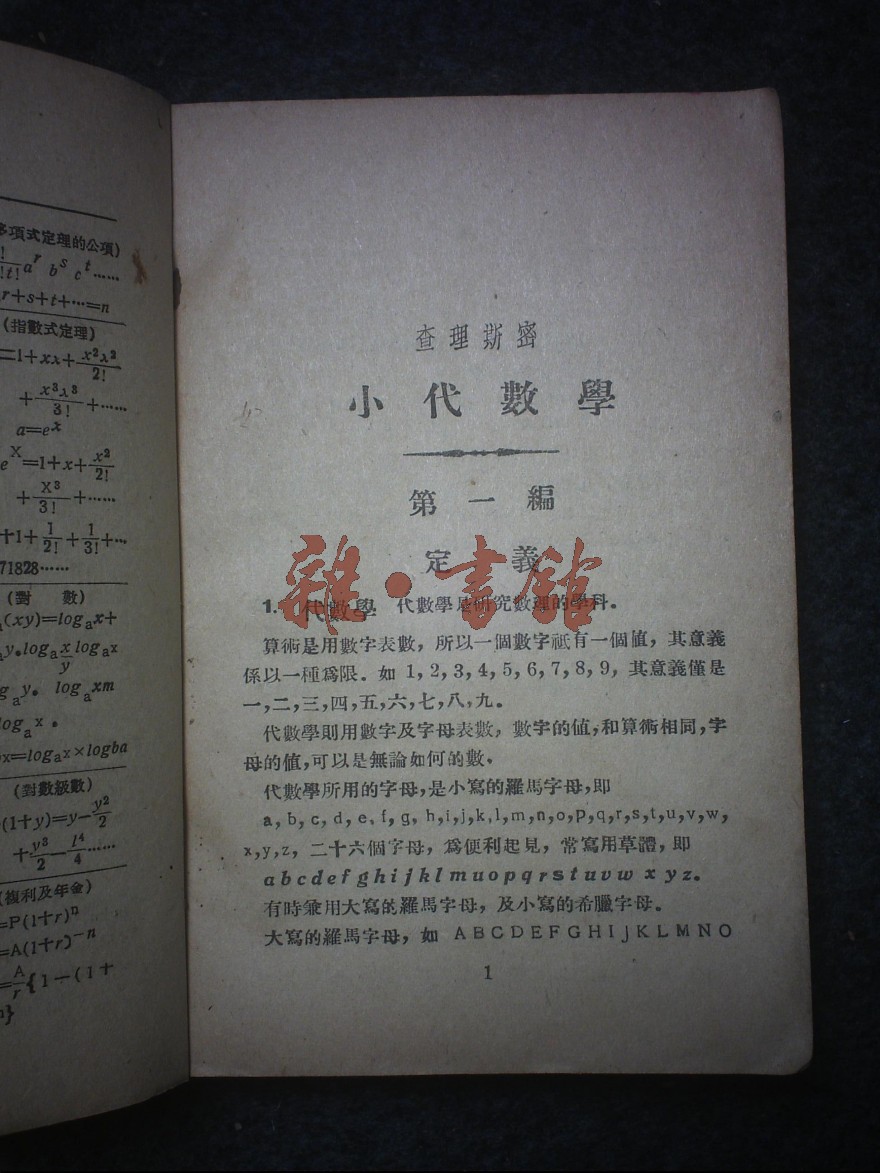 多項式定理的公項)
a^r b^s c^t……
r+s+t+…=n
(指數式定理)
=1+xλ+x²λ²/2!
+x³λ³/3!+……
a=e^x
e^X=1+x+x²/2!
+X³/3!+……
+1+1/2!+1/3!+…
71828……
(對 數)
(xy)=log_a x+
y.log_a x/y log_a x
log_a y. log_a xm
log_a x .
x=log_a x×logba
(對數級數)
(1+y)=y-y²/2
+y³/2-l⁴/4……
(複利及年金)
=P(1+r)^n
=A(1+r)^-n
=A/r{1-(1+
查理斯密
小代數學
第一編
定義
雜·書館
1. 代數學 代數學是研究數理的學科。
算術是用數字表數，所以一個數字祇有一個值，其意義
係以一種爲限。如 1, 2, 3, 4, 5, 6, 7, 8, 9, 其意義僅是
一,二,三,四,五,六,七,八,九。
代數學則用數字及字母表數，數字的值,和算術相同,字
母的值,可以是無論如何的數。
代數學所用的字母,是小寫的羅馬字母,即
a, b, c, d, e, f, g, h,i,j,k,l,m,n,o,p,q,r,s,t,u,v,w,
x,y,z, 二十六個字母，爲便利起見，常寫用草體，即
a b c d e f g h i j k l m u o p q r s t u v w x y z。
有時兼用大寫的羅馬字母，及小寫的希臘字母。
大寫的羅馬字母，如 A B C D E F G H I J K L M N O
1